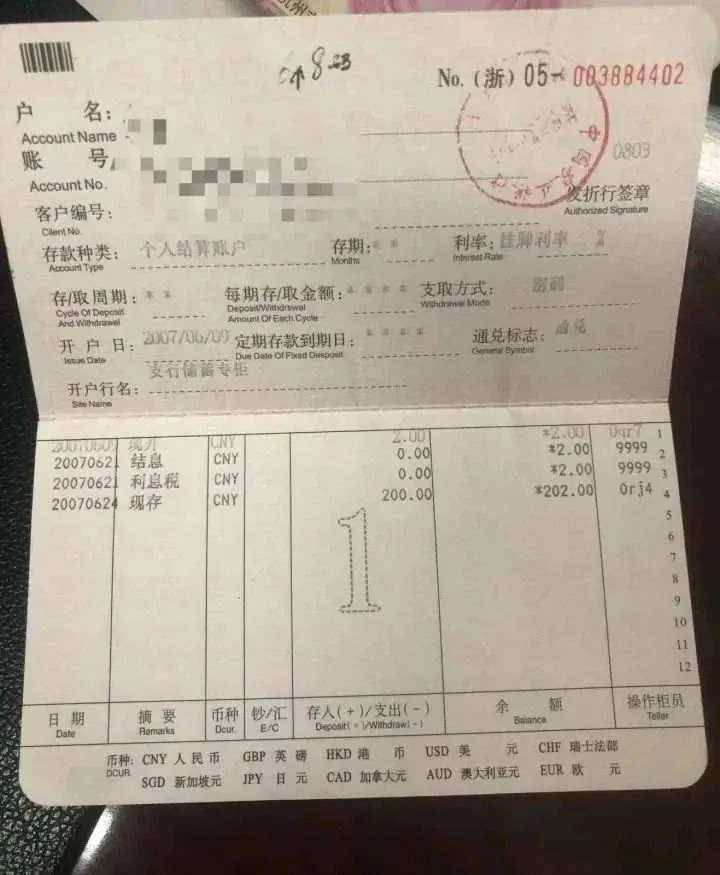 8-23
No.(浙) 05- 003884402
户 名:
Account Name
账 号
Account No.
0803
发折行签章
Authorized Signature
客户编号:
Client No.
存款种类: 个人结算账户 存期: * * 利率: 挂牌利率 %
Account Type Months Interest Rate
存/取周期: * * 每期存/取金额: * * * * 支取方式: 密码
Cycle Of Deposit And Withdrawal Deposit/Withdrawal Amount Of Each Cycle Withdrawal Mode
开 户 日: 2007/06/09 定期存款到期日: * * * * 通兑标志: 通兑
Issue Date Due Date Of Fixed Desposit General Symbol
开户行名: 支行储蓄专柜
Site Name
20070609 现开 CNY 2.00 *2.00 0qr7 1
20070621 结息 CNY 0.00 *2.00 9999 2
20070621 利息税 CNY 0.00 *2.00 9999 3
20070624 现存 CNY 200.00 *202.00 0rj4 4
5
6
7
8
9
10
11
12
1
日 期 摘 要 币种 钞/汇 存入(+)/支出(-) 余 额 操作柜员
Date Remarks Dcur. E/C Deposit(+)/Withdraw(-) Balance Teller
币种: CNY 人 民 币 GBP 英 镑 HKD 港 币 USD 美 元 CHF 瑞士法郎
DCUR SGD 新加坡元 JPY 日 元 CAD 加拿大元 AUD 澳大利亚元 EUR 欧 元